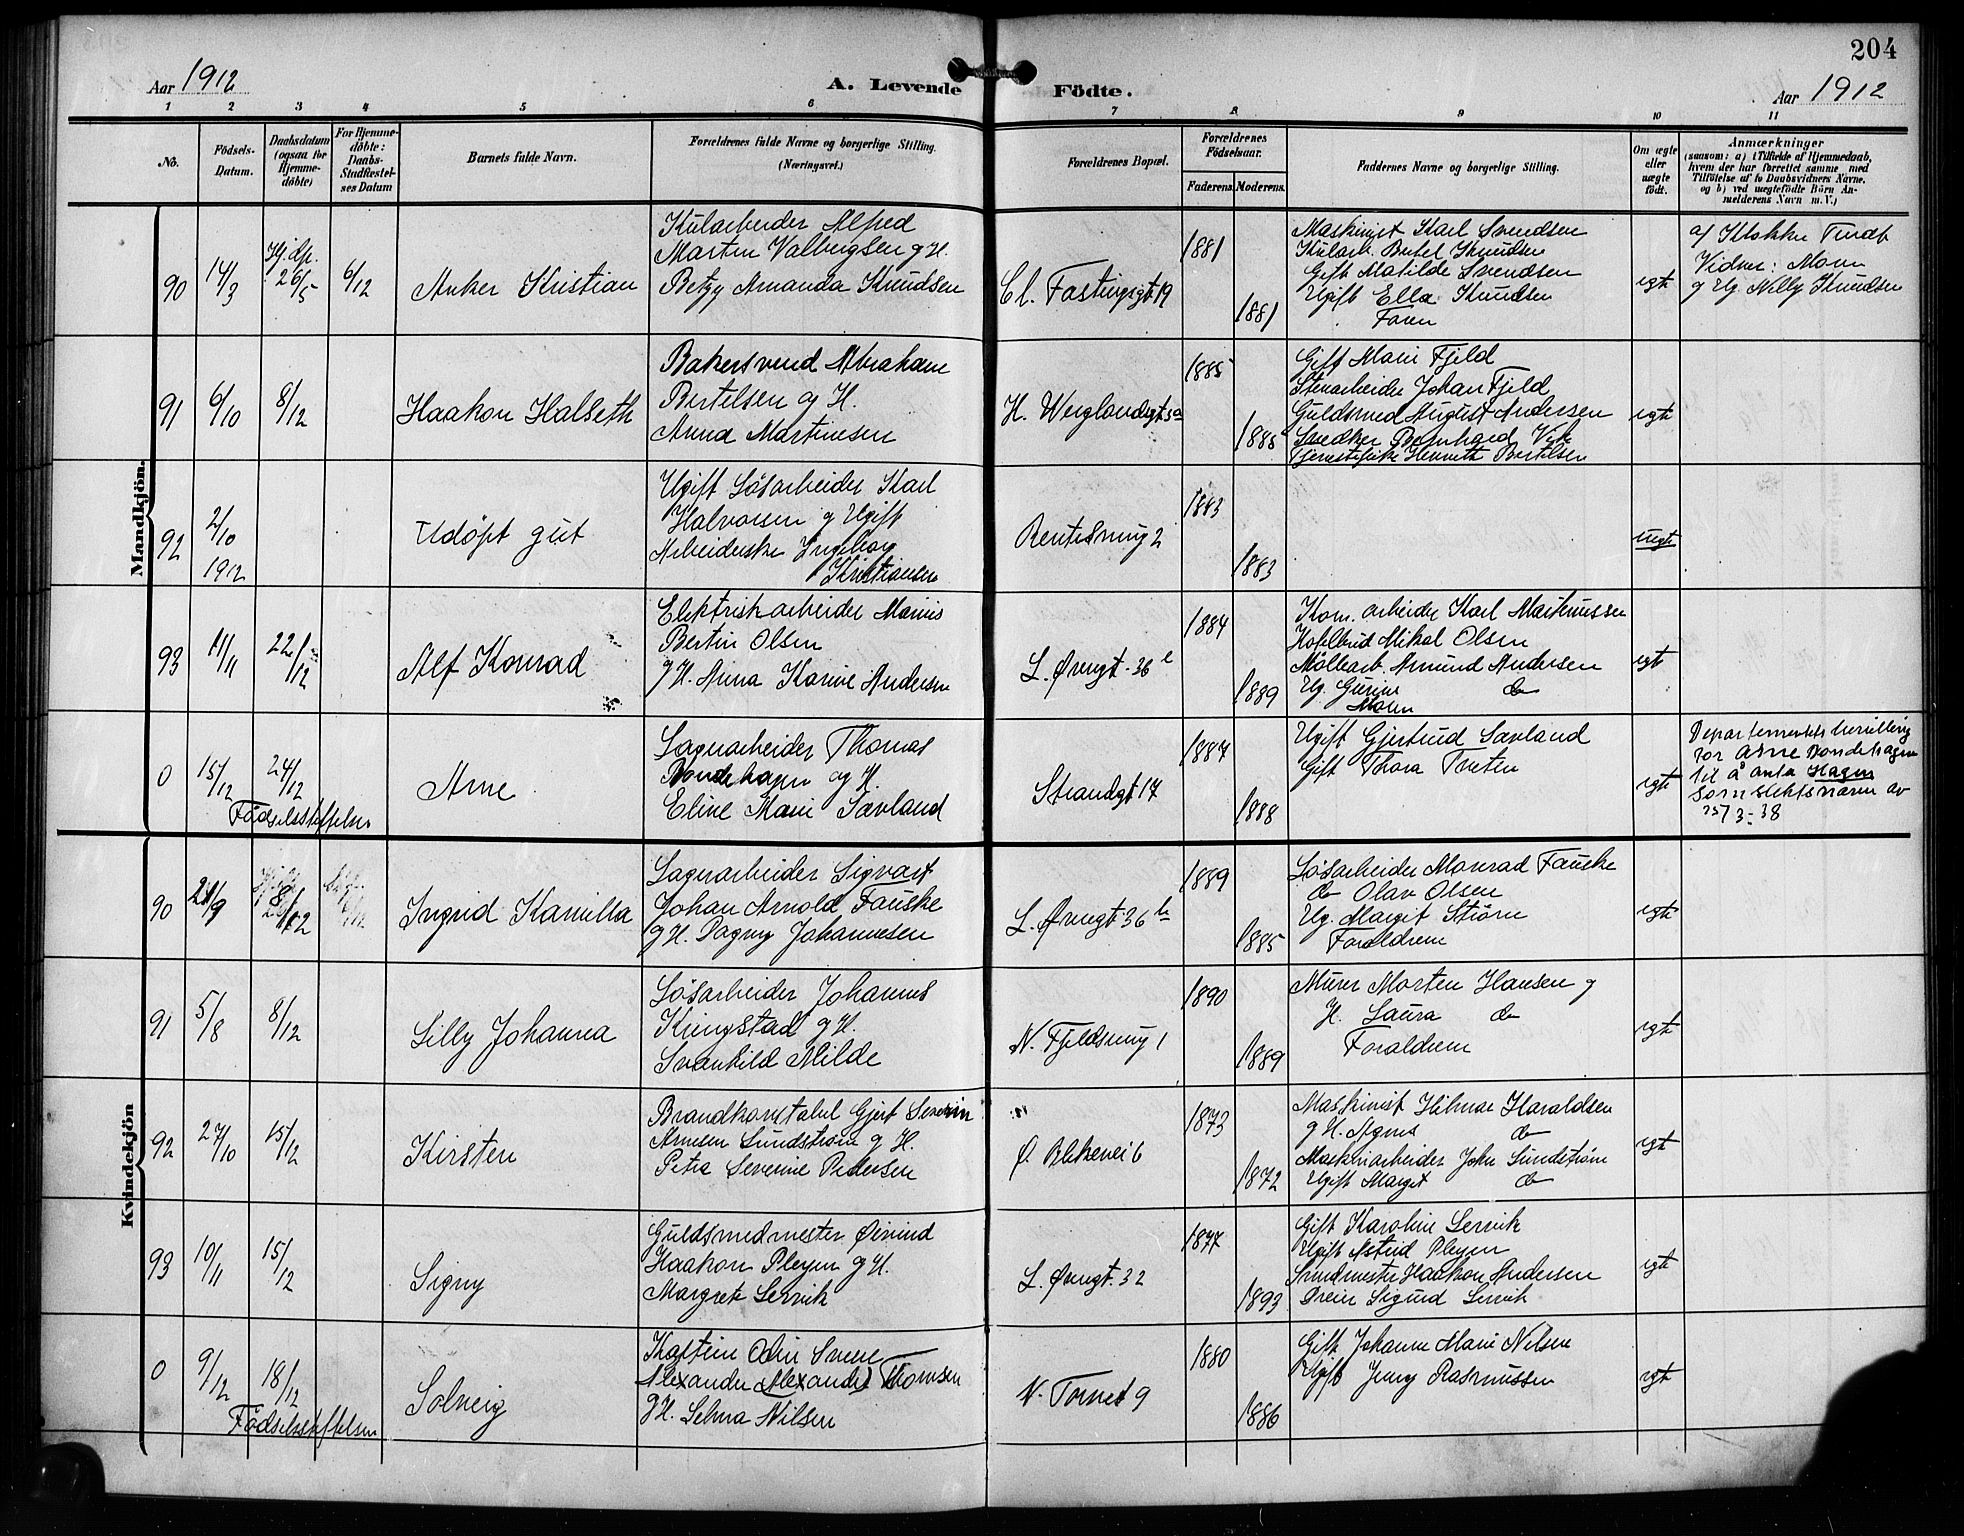 204
Aar 1912
A. Levende Födte.
Aar 1912
1 2 3 4 5 6 7 8 9 10 11
No.
Födsels-Datum.
Daabsdatum (ogsaa for Hjemme-döbte)
For Hjemme-döbte: Daabs-Stadfæstel-ses Datum
Barnets fulde Navn.
Forældrenes fulde Navne og borgerlige Stilling.
(Næringsvei.)
Forældrenes Bopæl.
Forældrenes Födselsaar.
Faderens. Moderens.
Faddernes Navne og borgerlige Stilling.
Om ægte eller uægte födt.
Anmærkninger
(saasom: a) i Tilfælde af Hjemmedaab,
hvem der har forrettet samme med
Tilföielse af to Daabsvidners Navne,
og b) ved uægtefödte Börn An-
melderens Navn m. V.)
Mandkjön.
90 14/3 Hj.dp. 26/5 6/12
Anker Kristian
Kularbeider Alfred
Martin Valbergsen g H.
Betzy Amanda Knudsen
Cl. Fastingsgt 19
1881
1881
Maskinist Karl Svendsen
Kularb. Bertel Knudsen
Gift Matilde Svendsen
Ugift Ella Knudsen
Faren
egte
af Klokker Tindt
Vidner: Moren
g Ug. Nelly Knudsen
91 6/10 8/12
Haakon Halseth
Bakersvend Abraham
Bertelsen og H.
Anna Martinsen
H. Werglandsgt 5a
1885
1885
Gift Marie Fjeld
Stenarbeider Johan Fjeld
Guldsmed August Andersen
Snedker Bernhard Vik
Tjenestepike Henriette Bertelsen
egte
92 2/10 1912
Udöpt gut
Ugift Løsarbeider Karl
Halvorsen g Ugift
Arbeiderske Ingeborg
Kristiansen
Bentesmug 2
1883
1883
uegte
93 11/11 22/12
Alf Konrad
Elektriskarbeider Marius
Bertin Olsen
g H. Anna Karine Andersen
L. Øvregt. 36
1884
1889
Kom. arbeider Karl Martinussen
Mikal Olsen
Møllearb. Amund Andersen
Ug. Gurine do
Moren
egte
0 15/12 24/12
Födselsstiftelsen
Arne
Lagerarbeider Thomas
Bondehagen og H.
Eline Marie Sævland
Strandgt 17
1887
1888
Ugift Gjertrud Sævland
Gift Thora Tveten
egte
Departementsbevilling
for Arne Bondehagen
til å anta Hagen
som slektsnavn av
25/3-38
Kvindekjön
90 21/9 8/12
Ingrid Kamilla
Lagerarbeider Sigvart
Johan Arnold Fauske
g H. Dagny Johannesen
L. Øvregt. 36 b
1889
1885
Løsarbeider Monrad Fauske
do Olav Olsen
Ug. Margit Støren
Forældrene
egte
91 5/8 8/12
Lilly Johanna
Løsarbeider Johannes
Kringstad g H.
Svanhild Milde
N. Fjeldsmug 1
1890
1889
Murer Morten Hansen g
H. Laura do
Forældrene
egte
92 27/10 15/12
Kirsten
Brandkonstabel Gjert Severin
Arnesen Sundstrøm g H.
Petra Severine Pedersen
Ø. Blekevei 6
1873
1872
Maskinist Hilmar Haraldsen
g H. Agnes do
Maskinarbeider John Sundstrøm
Ugift Margit do
egte
93 10/11 15/12
Signy
Guldsmedmester Øivind
Haakon Pleym g H.
Margrete Lervik
L. Øvregt. 32
1877
1893
Gift Karoline Lervik
Ugift Astrid Pleym
Smedmester Haakon Andersen
Dreier Sigurd Lervik
egte
0 9/12 18/12
Födselsstiftelsen
Solveig
Kaptein Odin Sverre
Alexander (Alexandr) Thomsen
g H. Selma Nilsen
N. Tornet 9
1880
1886
Gift Johanne Marie Nilsen
Ugift Jenny Rasmussen
egte